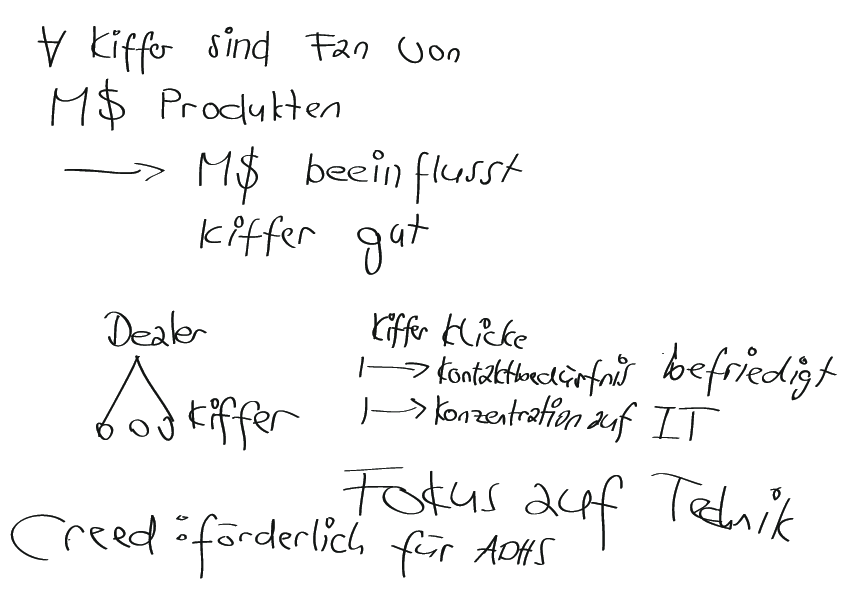 ∀ Kiffer sind Fan von
M$ Produkten
→ M$ beeinflusst
kiffer gut
Dealer
kiffer
Kiffer klicke
↦ Kontaktbedürfnis befriedigt
↦ Konzentration auf IT
Fokus auf Technik
Creed: förderlich für ADHS